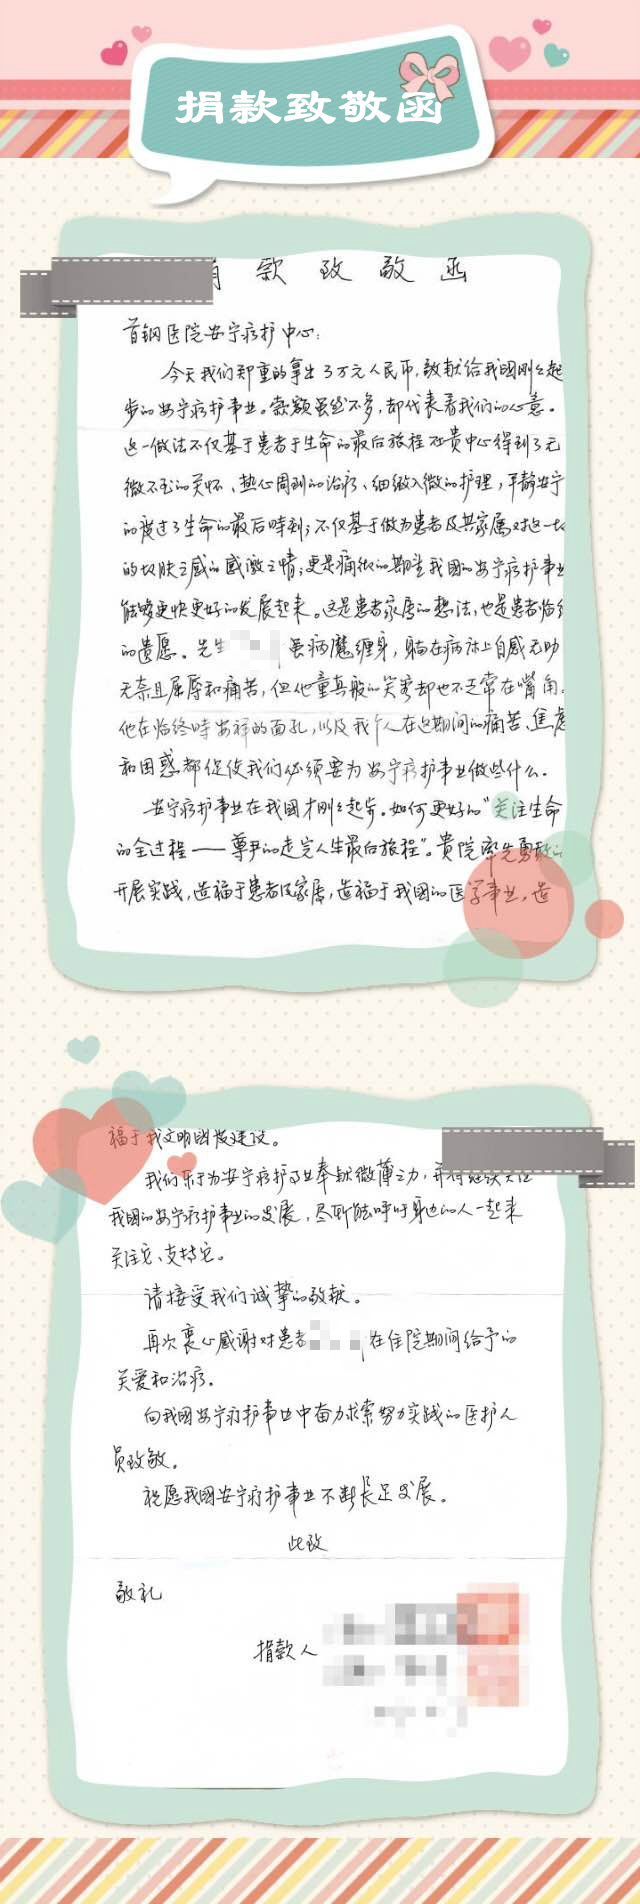 捐款致敬函
款致敬函
首钢医院安宁疗护中心：
今天我们郑重的拿出3万元人民币，敬献给我国刚刚起
步的安宁疗护事业。款额虽然不多，却代表着我们的心意。
这一做法不仅基于患者于生命的最后旅程在贵中心得到了无
微不至的关怀、热心周到的治疗、细致入微的护理，平静安宁
的度过了生命的最后时刻；不仅基于做为患者及其家属对这一切
的切肤之感的感激之情；更是痛彻的期望我国的安宁疗护事业
能够更快更好的发展起来。这是患者家属的想法，也是患者临终
的遗愿。先生 虽病魔缠身，躺在病床上自感无助
无奈且屈辱和痛苦，但他童真般的笑容却也不乏常在嘴角。
他在临终时安祥的面孔，以及我个人在这期间的痛苦、焦虑
和困惑都促使我们必须要为安宁疗护事业做些什么。
安宁疗护事业在我国才刚刚起步。如何更好的“关注生命
的全过程——尊严的走完人生最后旅程”。贵院率先勇敢的
开展实践，造福于患者及家属，造福于我国的医学事业，造
福于我文明国度建设。
我们乐于为安宁疗护事业奉献微薄之力，并将继续关注
我国的安宁疗护事业的发展，尽所能呼吁身边的人一起来
关注它、支持它。
请接受我们诚挚的敬献。
再次衷心感谢对患者 在住院期间给予的
关爱和治疗。
向我国安宁疗护事业中奋力求索努力实践的医护人
员致敬。
祝愿我国安宁疗护事业不断长足发展。
此致
敬礼
捐款人